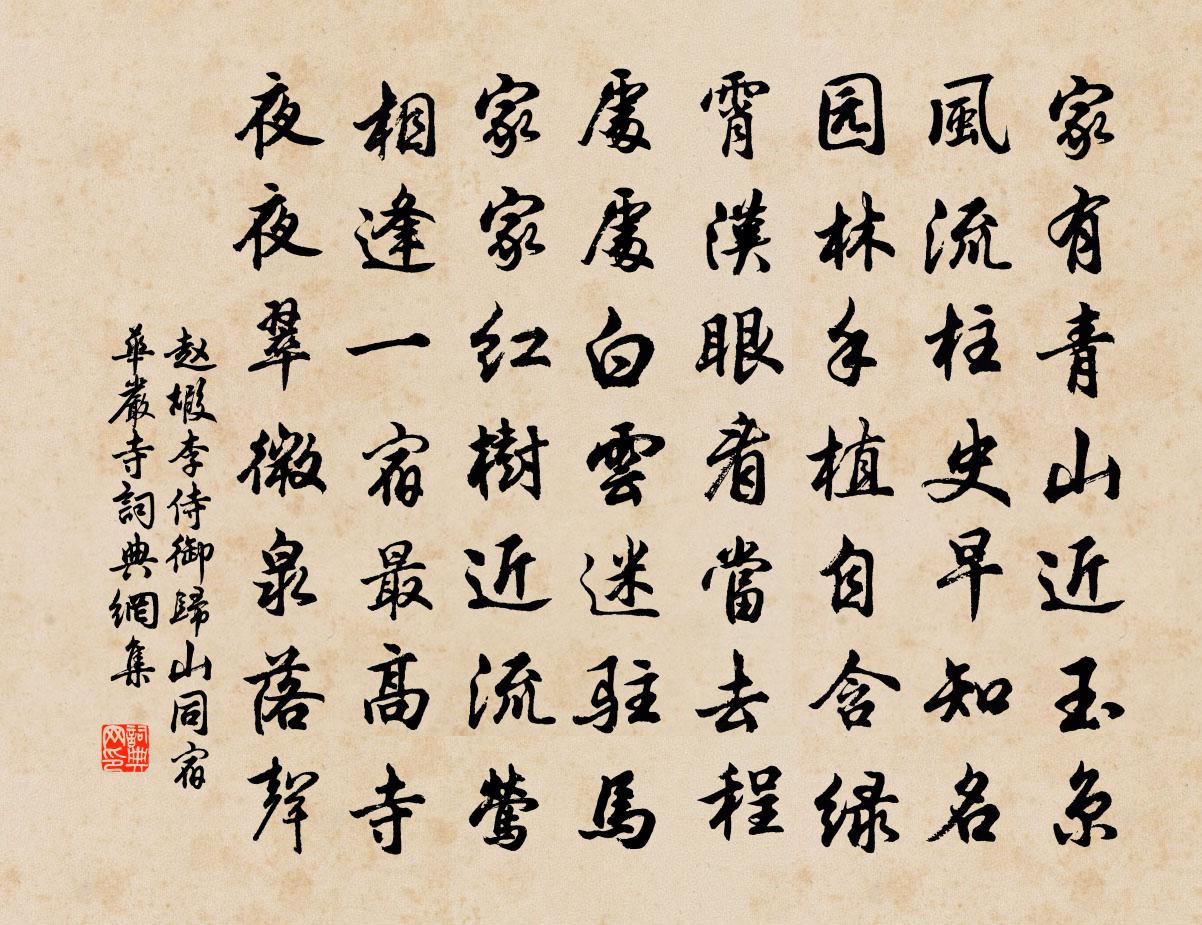 家有青山近玉京
風流柱史早知名
园林手植自含绿
霄漢眼看當去程
處處白雲迷駐馬
家家紅樹近流鶯
相逢一宿最高寺
夜夜翠微泉落聲
赵嘏李侍御歸山同宿
華嚴寺詞典網集
詞典网印